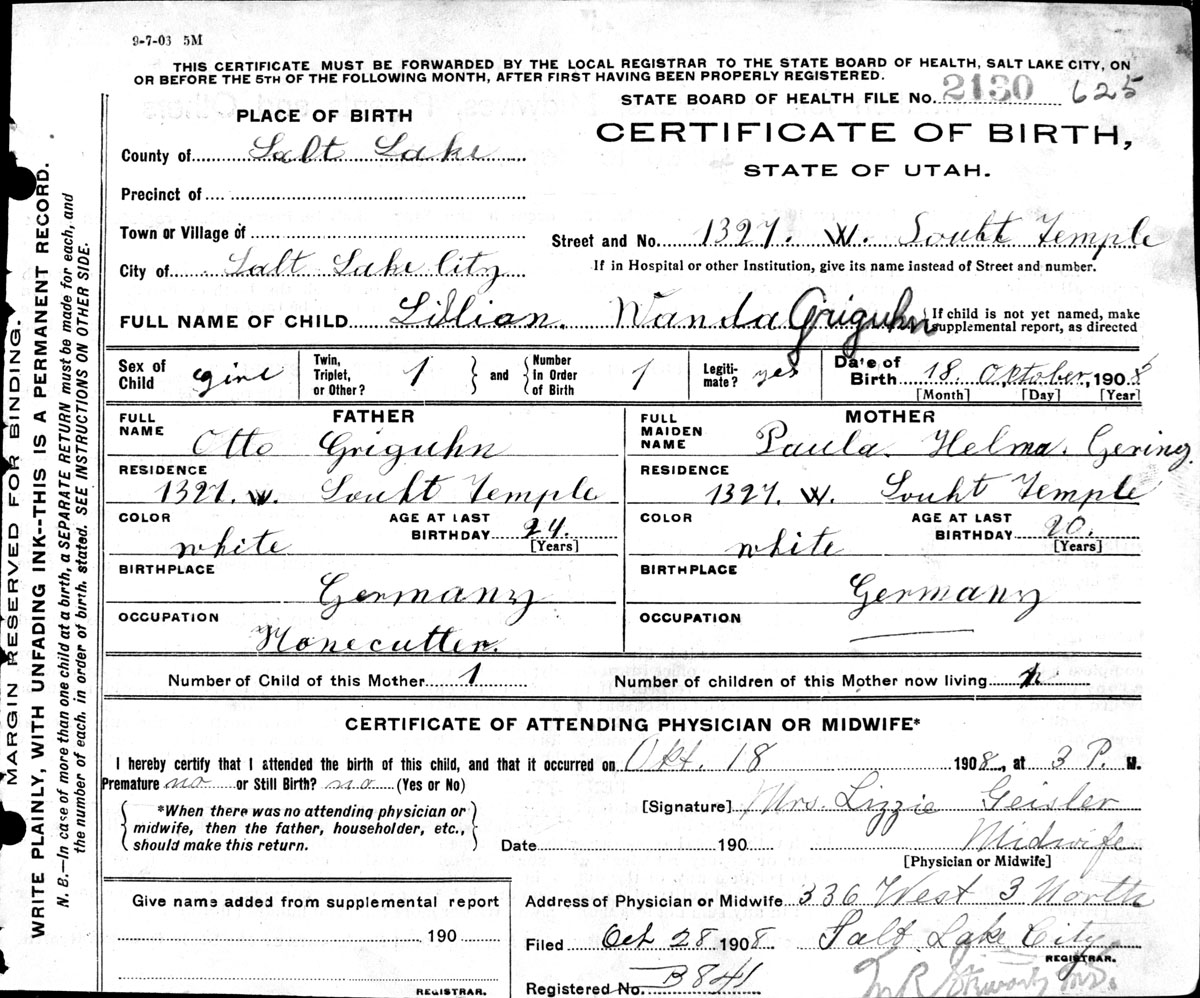 9-7-03 5M
THIS CERTIFICATE MUST BE FORWARDED BY THE LOCAL REGISTRAR TO THE STATE BOARD OF HEALTH, SALT LAKE CITY, ON
OR BEFORE THE 5TH OF THE FOLLOWING MONTH, AFTER FIRST HAVING BEEN PROPERLY REGISTERED.
STATE BOARD OF HEALTH FILE No. 2130 625
PLACE OF BIRTH
CERTIFICATE OF BIRTH,
STATE OF UTAH.
County of Salt Lake
Precinct of
Town or Village of
Street and No. 1327. W. Souht Temple
City of Salt Lake City
If in Hospital or other Institution, give its name instead of Street and number.
FULL NAME OF CHILD Lillian. Wanda Griguhn
{If child is not yet named, make
supplemental report, as directed
Sex of Child girl
Twin, Triplet, or Other? 1 } and { Number In Order of Birth 1
Legiti-mate? yes
Date of Birth 18. Oktober, 1908
[Month] [Day] [Year]
FATHER
FULL NAME Otto Griguhn
RESIDENCE
1327. W. Souht Temple
COLOR white
AGE AT LAST BIRTHDAY 24. [Years]
BIRTHPLACE
Germany
OCCUPATION
MOTHER
FULL MAIDEN NAME Paula Helma. Gering
RESIDENCE
1327. W. Souht Temple
COLOR white
AGE AT LAST BIRTHDAY 20. [Years]
BIRTHPLACE
Germany
OCCUPATION
Number of Child of this Mother 1
Number of children of this Mother now living
CERTIFICATE OF ATTENDING PHYSICIAN OR MIDWIFE*
I hereby certify that I attended the birth of this child, and that it occurred on Okt. 18 1908, at 3 P. M.
Premature no or Still Birth? no (Yes or No)
{*When there was no attending physician or
midwife, then the father, householder, etc.,
should make this return.}
[Signature] Mrs. Lizzie Geisler
Date 190 Midwife
[Physician or Midwife]
Give name added from supplemental report
190
REGISTRAR.
Address of Physician or Midwife 336 West 3 North
Filed Oct 28 1908 Salt Lake City
REGISTRAR.
Registered No. B841
MARGIN RESERVED FOR BINDING.
WRITE PLAINLY, WITH UNFADING INK--THIS IS A PERMANENT RECORD.
N. B.—In case of more than one child at a birth, a SEPARATE RETURN must be made for each, and
the number of each, in order of birth, stated. SEE INSTRUCTIONS ON OTHER SIDE.